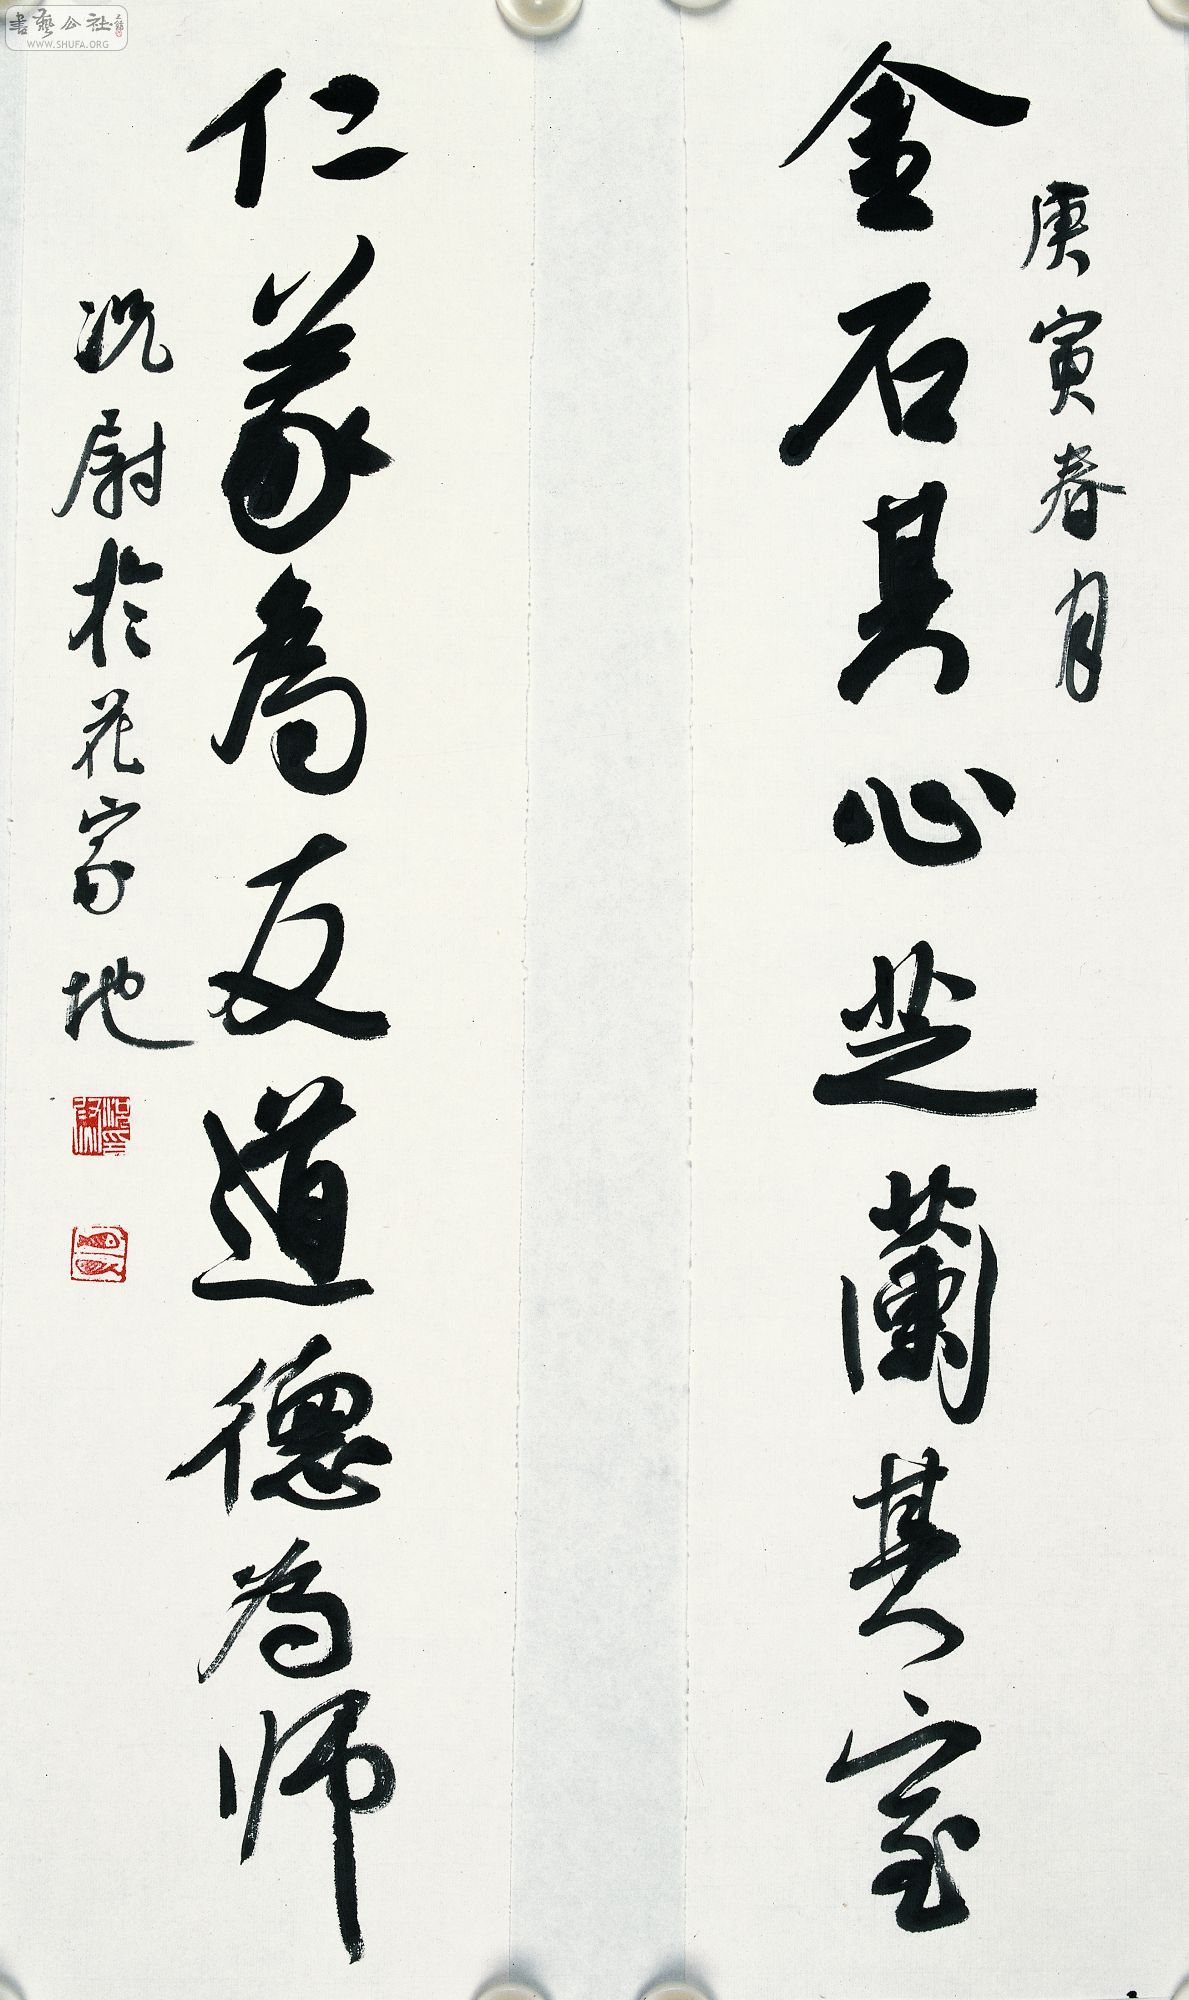 庚寅春月
金石其心芝蘭其室
仁義為友道德為師
况尉於花家地
書藝公社
WWW.SHUFA.ORG